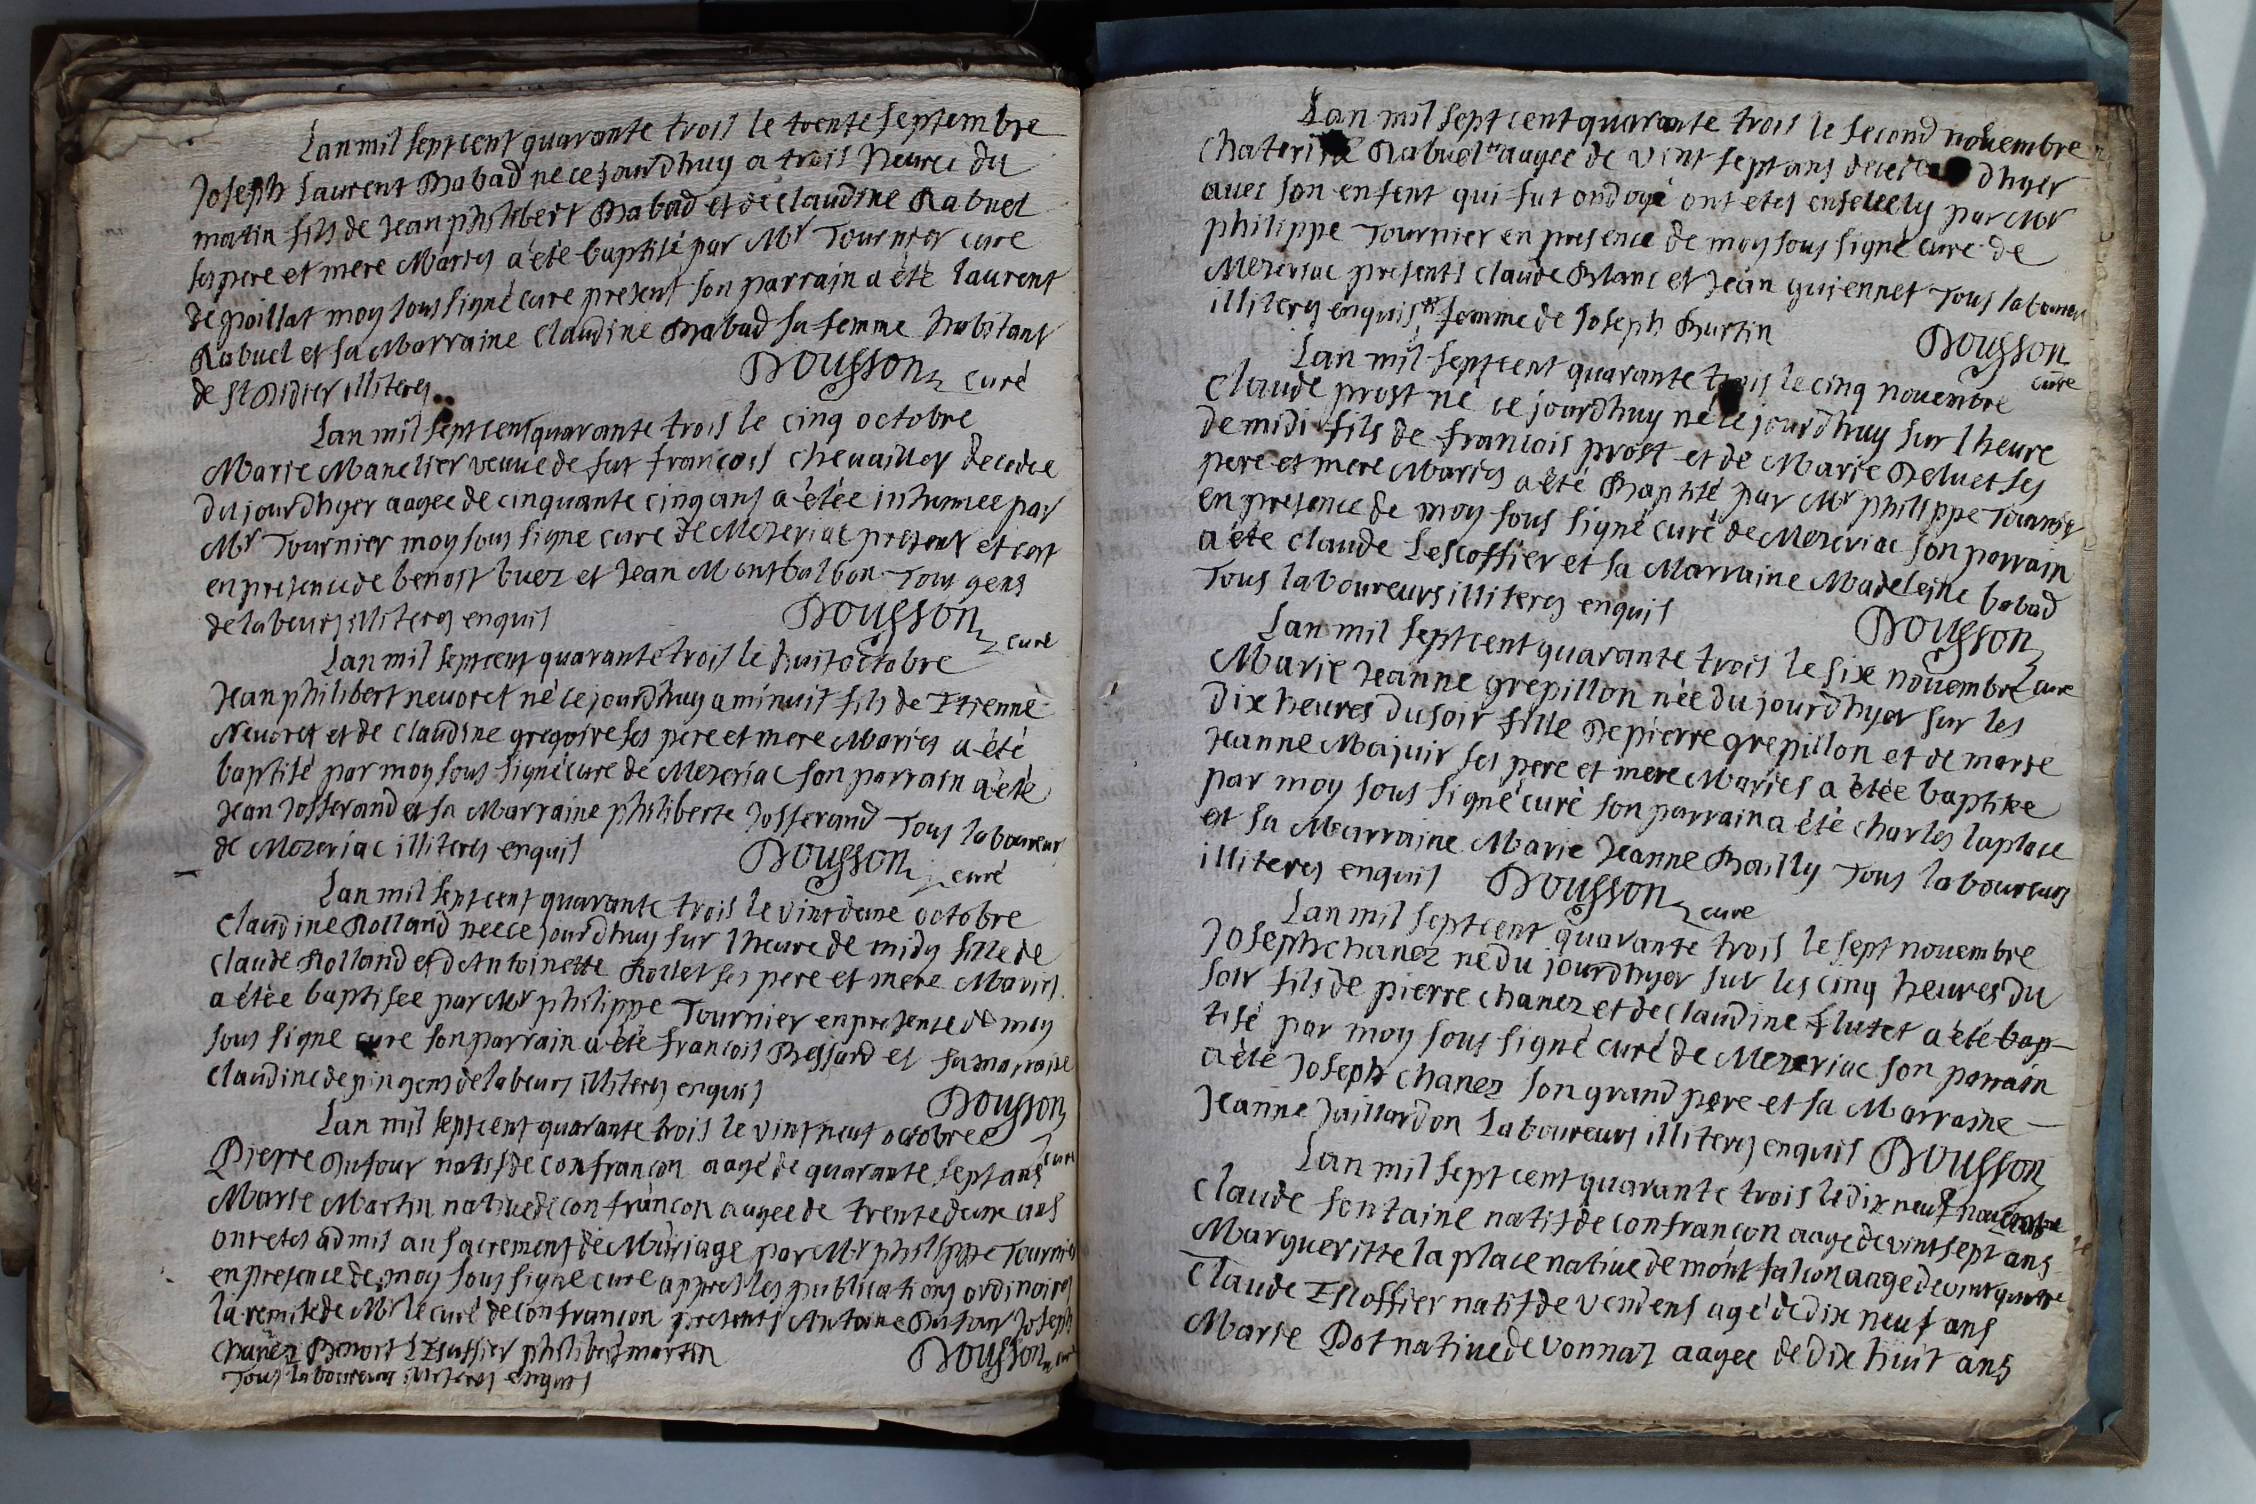 Lan mil sept cent quarante trois le trente septembre
Joseph Laurent Babad ne ce jourdhuy a trois heures du
matin fils de Jean philibert Babad et de claudine Rabuel
ses pere et mere Maries a été baptisé par Mr Tournier cure
de moy sous signé cure present son parrain a été laurent
Rabuel et sa Marraine Claudine Babad sa femme habitant
de St Didier illiteres
Bousson curé
Lan mil sept cent quarante trois le cinq octobre
Marie Manelier veuve de fut françois chevailler decedee
du jourdhyer aagee de cinquante cinq ans a étée inhumee par
Mr Tournier moy sous signe cure de Mezeriac present et cest
en presence de benost buez et Jean Montbalbon Tous gens
de labeurs illiteres enquis
Bousson curé
Lan mil sept cent quarante trois le huit octobre
Jean philibert nevoret né ce jourdhuy a minuit fils de Etienne
Nevoret et de claudine gregoire ses pere et mere Maries a été
baptisé par moy sous signé cure de Mezeriac son parrain a été
Jean Josserand et sa Marraine philiberte Josserand Tous laboureurs
de Mezeriac illiteres enquis
Bousson curé
Lan mil sept cent quarante trois le vint deux octobre
Claudine Rolland nee ce jourdhuy sur lheure de midy fille de
Claude Rolland et dAntoinette Rollet ses pere et mere Maries
a étée baptisee par Mr philippe Tournier en presence de moy
sous signe cure son parrain a été francois Bessard et sa marraine
claudine depin gens de labeurs illiteres enquis
Bousson curé
Lan mil sept cent quarante trois le vint neuf octobre
Pierre Dufour natif de confrancon aagé de quarante sept ans
Marie Martin native de confrançon aagee de trente deux ans
ont etes admis au sacrement de Mariage par Mr philippe Tournier
en presence de moy sous signe cure appres les publications ordinaires
la remise de Mr le curé de confrancon presents Antoine Dufour Joseph
Chanez Benoit LEscuffier philibert martin
Tous laboureurs illiteres enquis
Bousson curé
Lan mil sept cent quarante trois le second novembre
Chaterine Rabuel aagee de vint sept ans decedee dhyer
avec son enfent qui fut ondoyé ont etes ensevely par Mr
philippe Tournier en presence de moy sous signé cure de
Mezeriac presents claude Blanc et Jean guiennet Tous laboureurs
illiteres enquis femme de Joseph Burtin
Bousson
cure
Lan mil sept cent quarante trois le cinq novembre
Claude prost né ce jourdhuy né ce jourdhuy sur lheure
de midi fils de francois prost et de Marie Deluet ses
pere et mere Maries a été Baptisé par Mr philippe Tournier
en presence de moy sous signé curé de Mezeriac son parrain
a été claude Lescoffier et sa Marraine Madeleine babad
Tous laboureurs illiteres enquis
Bousson cure
Lan mil sept cent quarante trois le six novembre
Marie Jeanne grepillon née du jourdhyer sur les
dix heures du soir fille de pierre grepillon et de marie
Jeanne Majuir ses pere et mere Maries a étée baptisee
par moy sous signé curé son parrain a été charles laplace
et sa Marraine Marie Jeanne Bailly Tous laboureurs
illiteres enquis Bousson cure
Lan mil sept cent quarante trois le sept novembre
Joseph chanez né du jourdhyer sur les cinq heures du
soir fils de pierre chanez et de claudine flutet a été bap-
tisé par moy sous signé curé de Mezeriac son parrain
a été Joseph chanez son grand pere et sa Marraine
Jeanne Jaillardon Laboureurs illiteres enquis Bousson
Lan mil sept cent quarante trois le dix neuf novembre
Claude fontaine natif de confrancon aage de vint sept ans
Margueritte la place native de mont falcon aage de vint quatre
Claude Escoffier natif de vendens agé de dix neuf ans
Marie Dot native de vonnaz aagee de dix huit ans